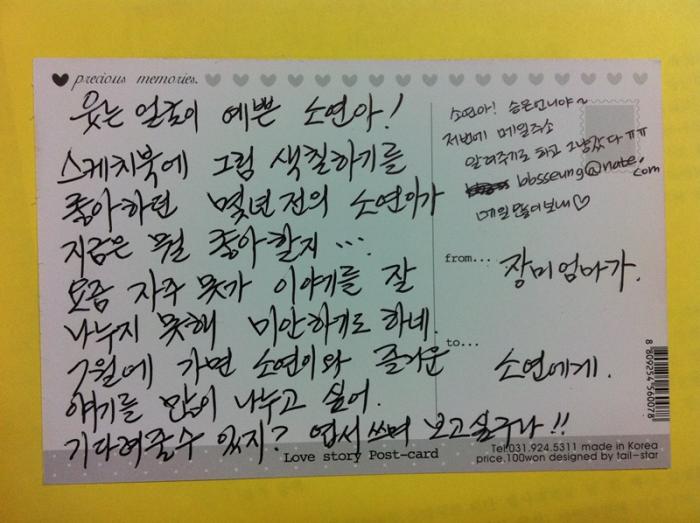 precious memories.
웃는 얼굴이 예쁜 소연아!
스케치북에 그림 색칠하기를
좋아하던 몇년 전의 소연이가
지금은 뭘 좋아할지 ...
요즘 자주 못가 이야기를 잘
나누지 못해 미안하기도 하네.
7월에 가면 소연이와 즐거운
얘기를 많이 나누고 싶어.
기다려줄수 있지? 엽서 쓰며 보고싶구나!!
소연아! 승은언니야~
저번에 메일주소
알려주기로 하고 그냥갔다 ㅠㅠ
bbsseung@nate.com
메일 많이보내♡
from... 장미엄마가.
to... 소연에게.
8 809254 560078
Love story Post-card
Tel:031.924.5311 made in Korea
price.100won designed by tail-star